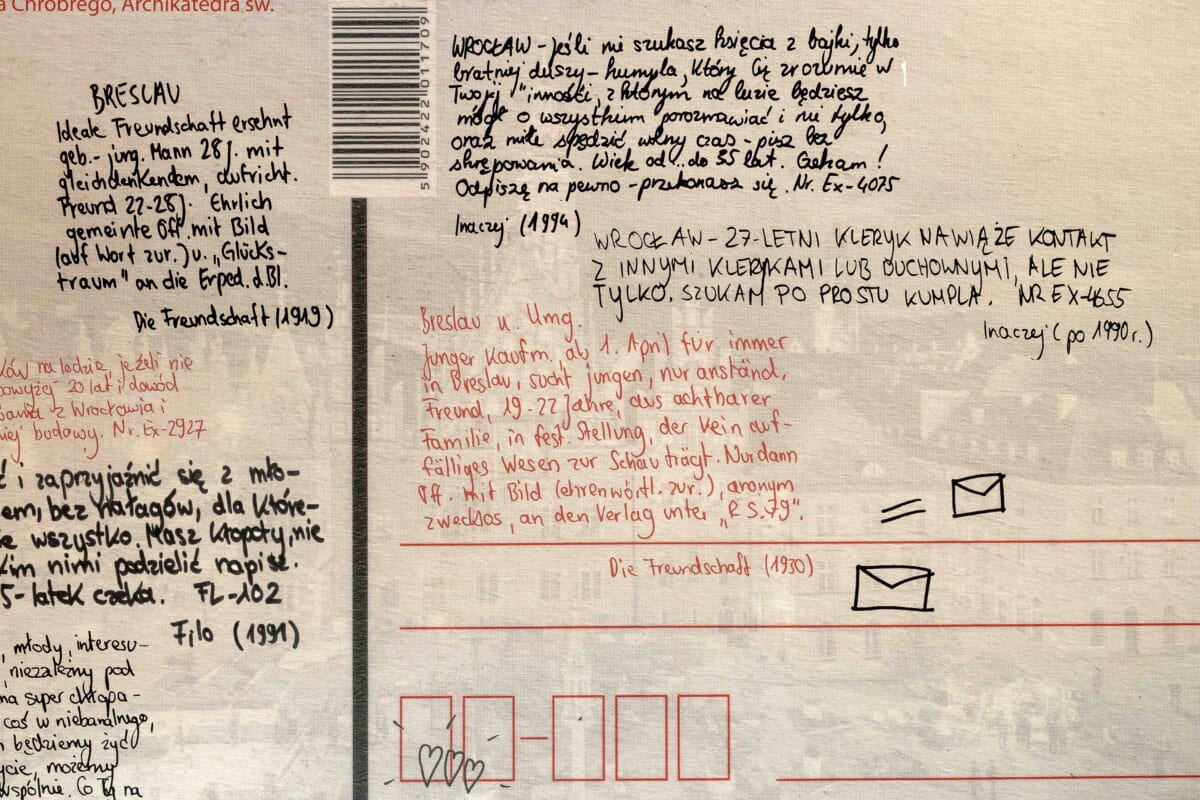 a Chrobrego, Archikatedra św.
BRESLAU
Ideale Freundschaft ersehnt
geb.- jüng. Mann 28 J. mit
gleichdenkendem, aufricht.
Freund 22-28 J. Ehrlich
gemeinte Off. mit Bild
(auf Wort zur.) u. „Glücks-
traum" an die Exped. d. Bl.
Die Freundschaft (1919)
ków na lodzie, jeżeli nie
powyżej 20 lat i dowód
z Wrocławia i
budowy. Nr. Ex-2927
ć i zaprzyjaźnić się z mło-
em, bez nałogów, dla które-
e wszystko. Masz kłopoty, nie
kim nimi podzielić napisz.
5-latek czeka. FL-102
Filo (1991)
, młody, interesu-
niezależny pod
na super chłopa-
coś w niebanalnego,
będziemy żyć
ycie, możemy
wspólnie. Co Ty na
5902422011709
WROCŁAW - Jeśli nie szukasz księcia z bajki, tylko
bratniej duszy - kumpla, który Cię zrozumie w
Twojej "inności, z którym na luzie będziesz
mógł o wszystkim porozmawiać i nie tylko,
oraz miło spędzić wolny czas - pisz bez
skrępowania. Wiek od...do 35 lat. Czekam!
Odpiszę na pewno - przekonasz się. Nr. Ex-4075
Inaczej (1994)
WROCŁAW - 27-LETNI KLERYK NAWIĄŻE KONTAKT
Z INNYMI KLERYKAMI LUB DUCHOWNYMI, ALE NIE
TYLKO. SZUKAM PO PROSTU KUMPLA. NR EX-4655
Inaczej (po 1990r.)
Breslau u. Umg.
Junger Kaufm., ab 1. April für immer
in Breslau, sucht jungen, nur anständ.
Freund, 19-22 Jahre, aus achtbarer
Familie, in fest. Stellung, der kein auf-
fälliges Wesen zur Schau trägt. Nur dann
Off. mit Bild (ehrenwörtl. zur.), anonym
zwecklos, an den Verlag unter „R S. 79".
Die Freundschaft (1930)